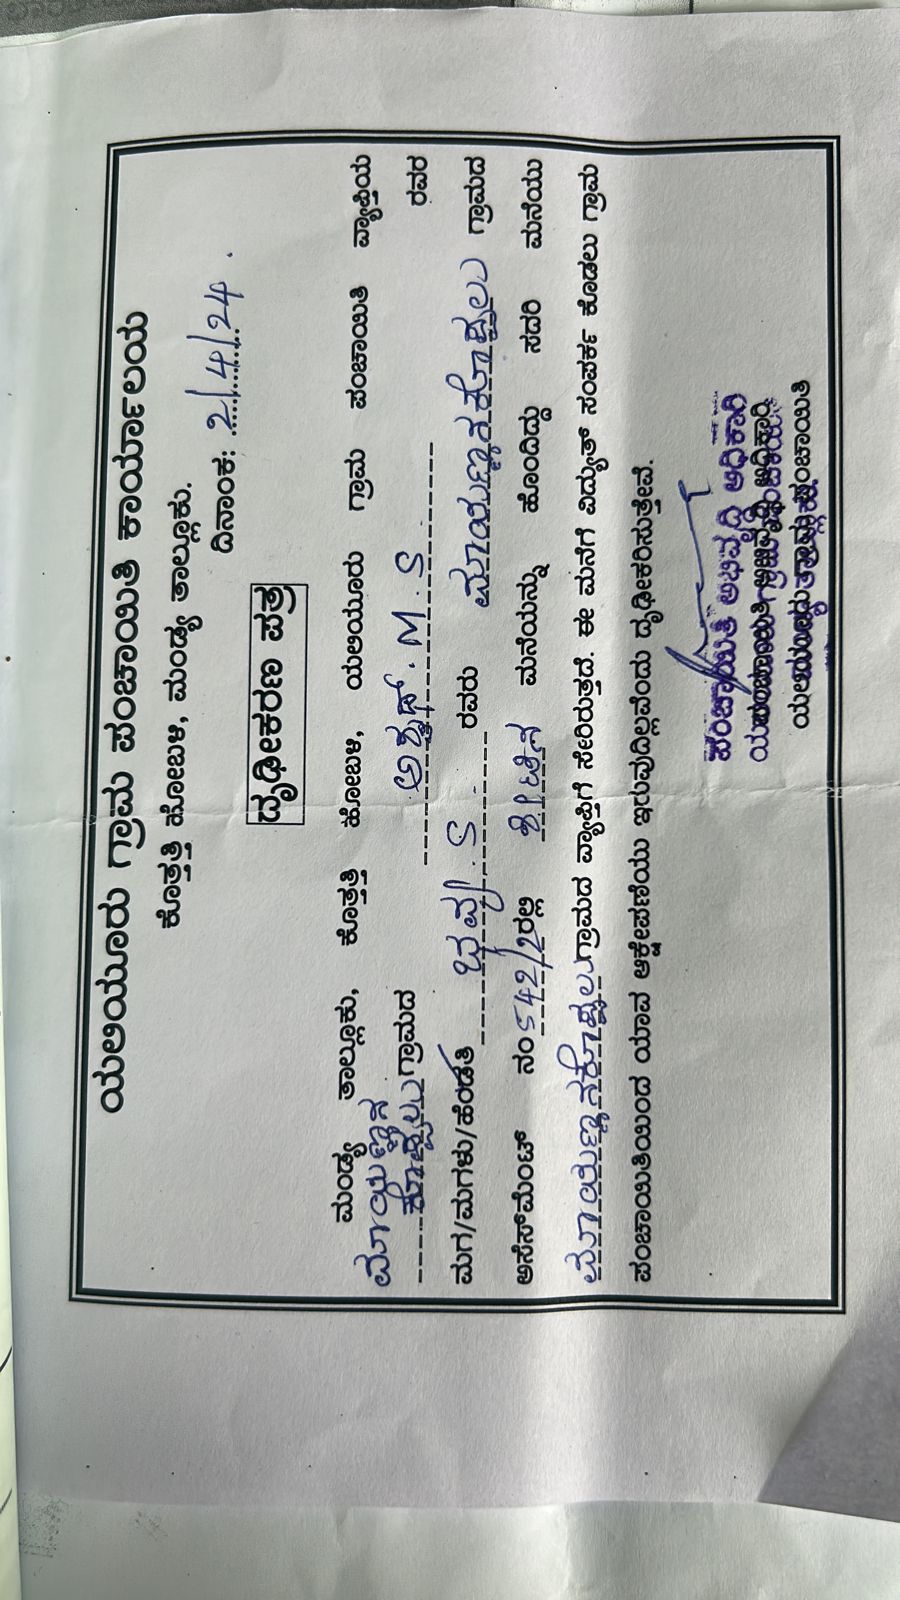 ಯಲಿಯೂರು ಗ್ರಾಮ ಪಂಚಾಯಿತಿ ಕಾರ್ಯಾಲಯ
ಕೊತ್ತತ್ತಿ ಹೋಬಳಿ, ಮಂಡ್ಯ ತಾಲ್ಲೂಕು.
ದಿನಾಂಕ: 2/4/24.
ದೃಢೀಕರಣ ಪತ್ರ
ಮಂಡ್ಯ ತಾಲ್ಲೂಕು, ಕೊತ್ತತ್ತಿ ಹೋಬಳಿ, ಯಲಿಯೂರು ಗ್ರಾಮ ಪಂಚಾಯಿತಿ ವ್ಯಾಪ್ತಿಯ
ಮಾಯಣ್ಣನ
ಕೊಪ್ಪಲು ಗ್ರಾಮದ M.S ರವರ
ಮಗ/ಮಗಳು/ಹೆಂಡತಿ ಭವ್ಯ.S. ರವರು ಮಾಯಣ್ಣನಕೊಪ್ಪಲು ಗ್ರಾಮದ
ಅಸೆಸ್‌ಮೆಂಟ್ ನಂ 542/2ರಲ್ಲಿ ಶೀಟಿನ ಮನೆಯನ್ನು ಹೊಂದಿದ್ದು ಸದರಿ ಮನೆಯು
ಮಾಯಣ್ಣನಕೊಪ್ಪಲು ಗ್ರಾಮದ ವ್ಯಾಪ್ತಿಗೆ ಸೇರಿರುತ್ತದೆ. ಈ ಮನೆಗೆ ವಿದ್ಯುತ್ ಸಂಪರ್ಕ ಕೊಡಲು ಗ್ರಾಮ
ಪಂಚಾಯಿತಿಯಿಂದ ಯಾವ ಆಕ್ಷೇಪಣೆಯು ಇರುವುದಿಲ್ಲವೆಂದು ದೃಢೀಕರಿಸುತ್ತೇವೆ.
ಪಂಚಾಯಿತಿ ಅಭಿವೃದ್ಧಿ ಅಧಿಕಾರಿ
ಪಂಚಾಯಿತಿ ಅಭಿವೃದ್ಧಿ ಅಧಿಕಾರಿ
ಯಲಿಯೂರು ಗ್ರಾಮ ಪಂಚಾಯಿತಿ